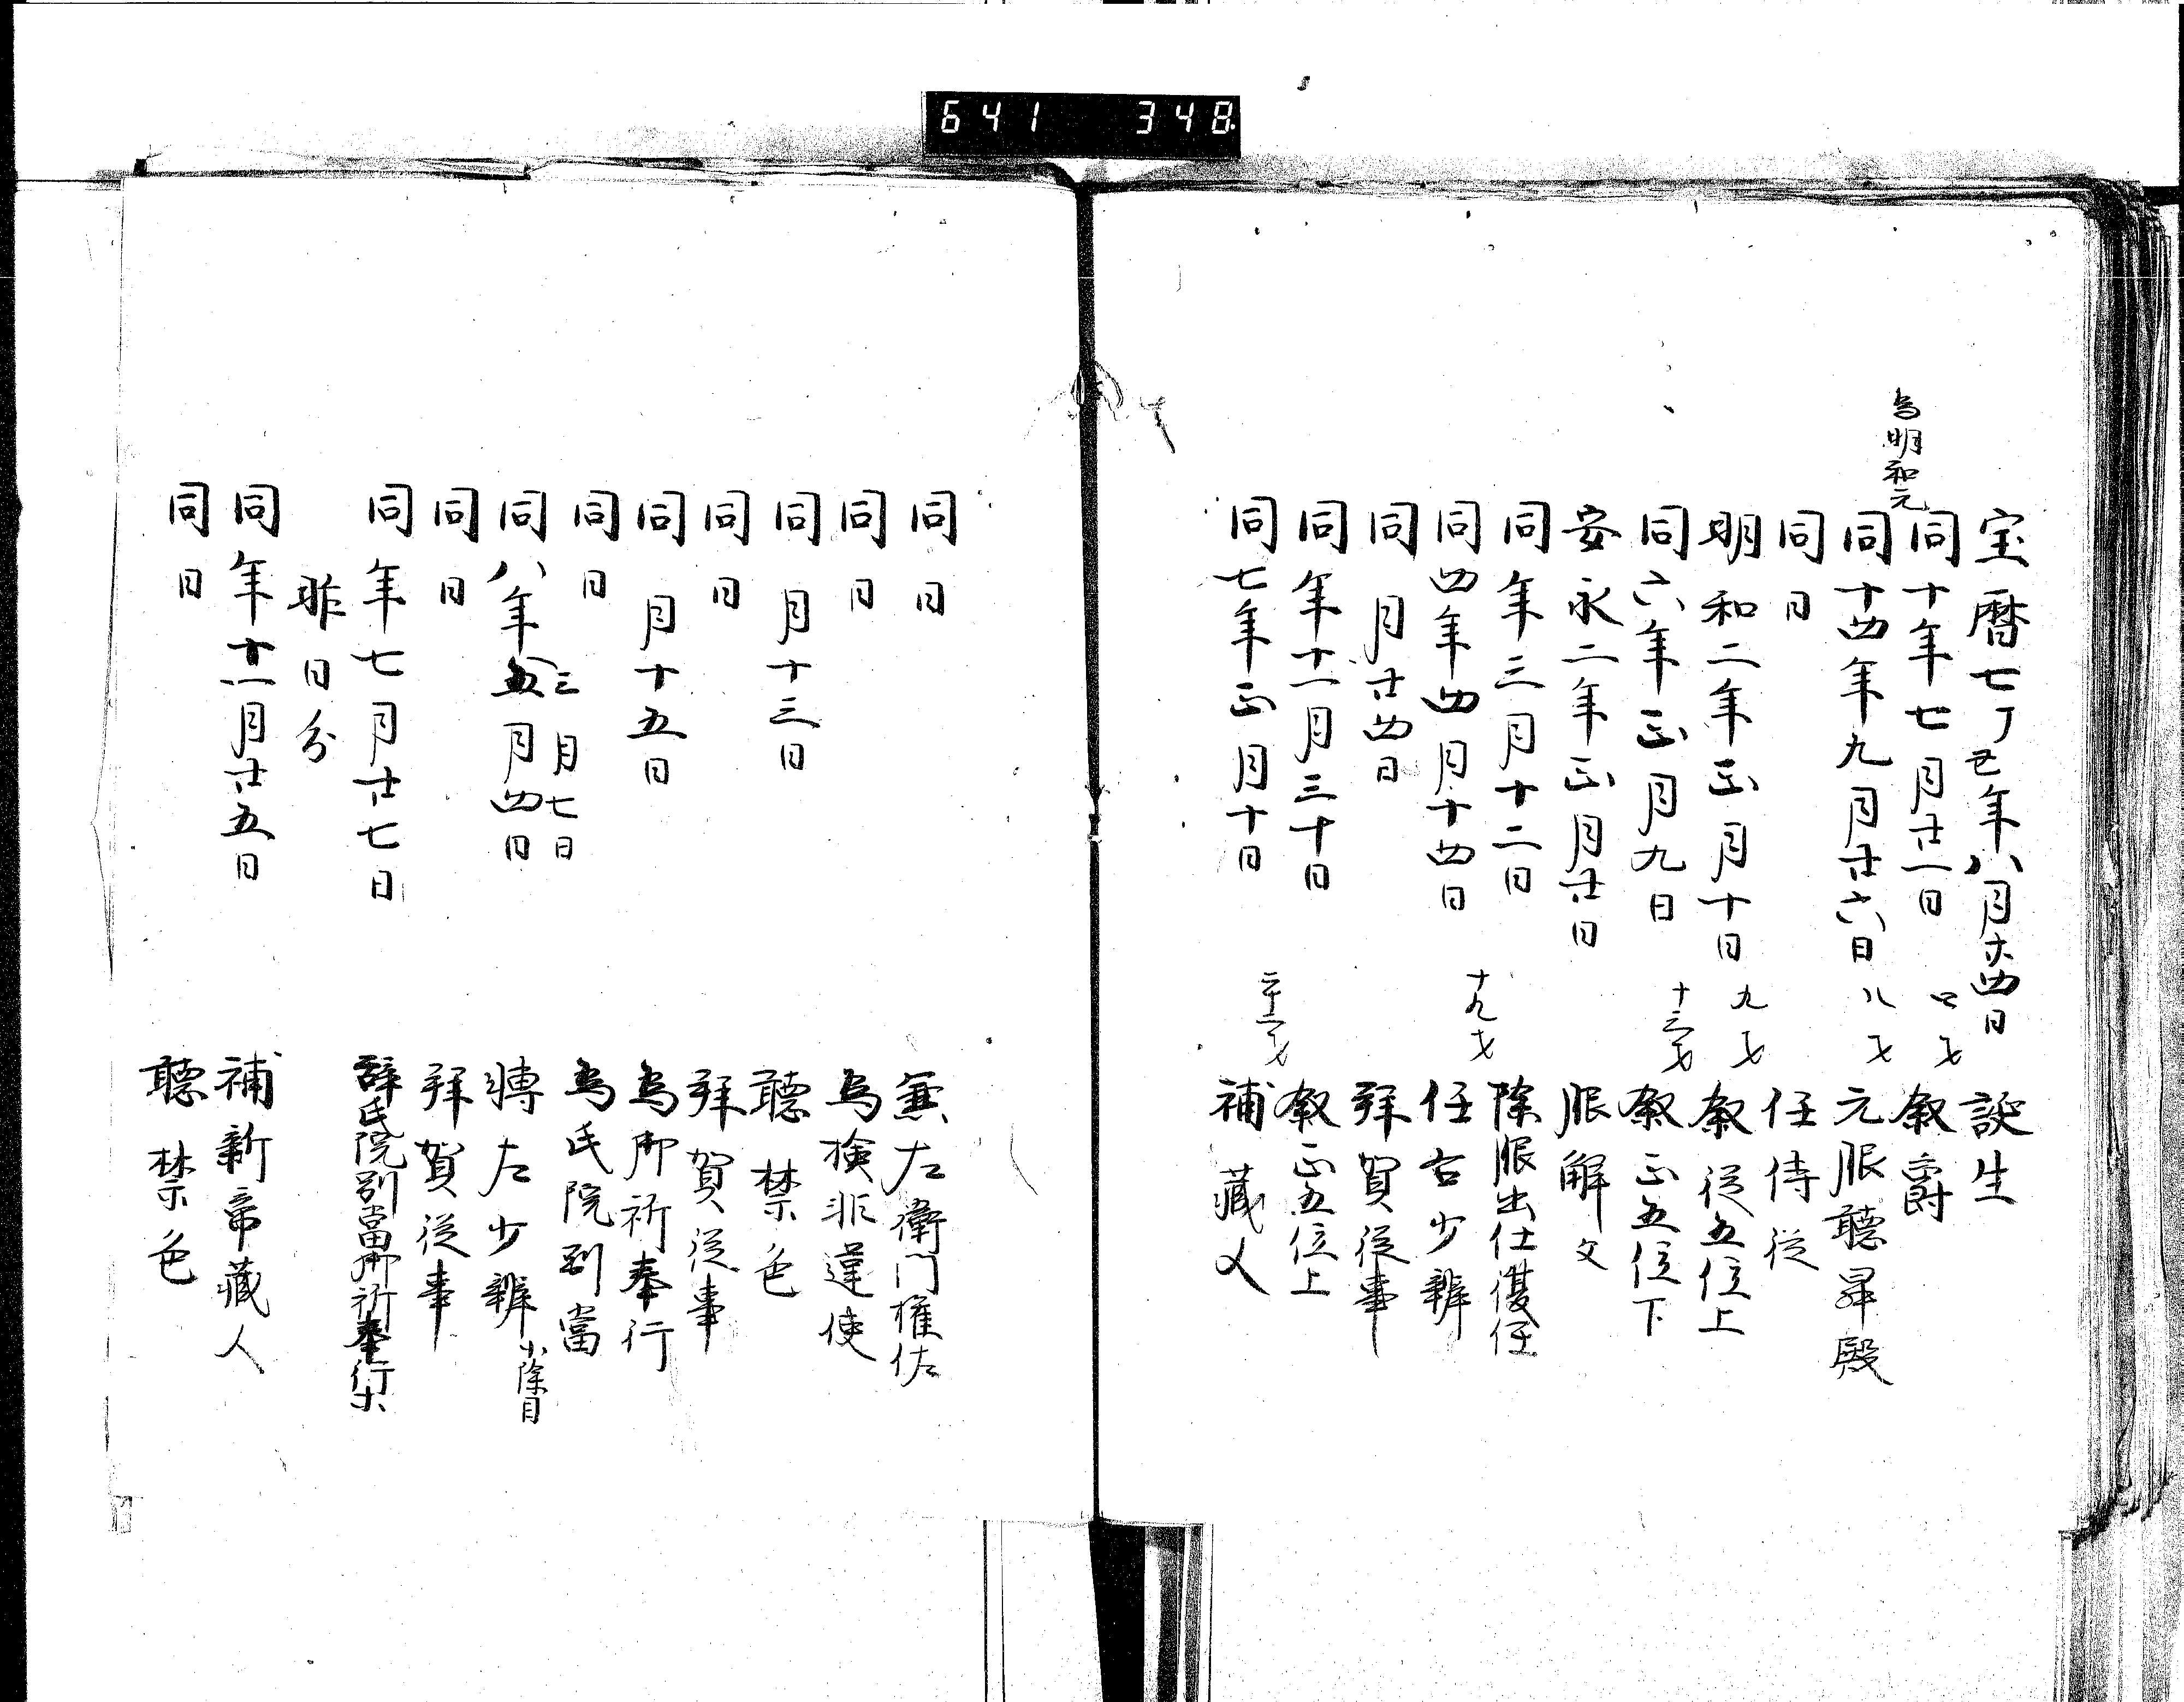 641 348
宝暦七丁丑年八月廿四日 誕生
同十年七月廿一日 四才 叙爵
為明和元
同十四年九月廿六日 八才 元服聴昇殿
同日 任侍従
明和二年正月十日 九才 叙従五位上
同六年正月九日 十三才 叙正五位下
安永二年正月廿日 服解文
同年三月十二日 除服出仕復任
同四年四月十四日 十九才 任右少辨
同月廿四日 拝賀従事
同年十一月三十日 叙正五位上
同七年正月十日 二十二才 補蔵人
同日 兼左衛門権佐
同日 為検非違使
同月十三日 聴禁色
同日 拝賀従事
同月十五日 為御祈奉行
同日 為氏院別當
三月七日
同八年五月四日 轉左少辨 小除目
同日 拝賀従事
同年七月廿七日 辞氏院別當御祈奉行等
昨日分
同年十一月廿五日 補新帝蔵人
同日 聴禁色